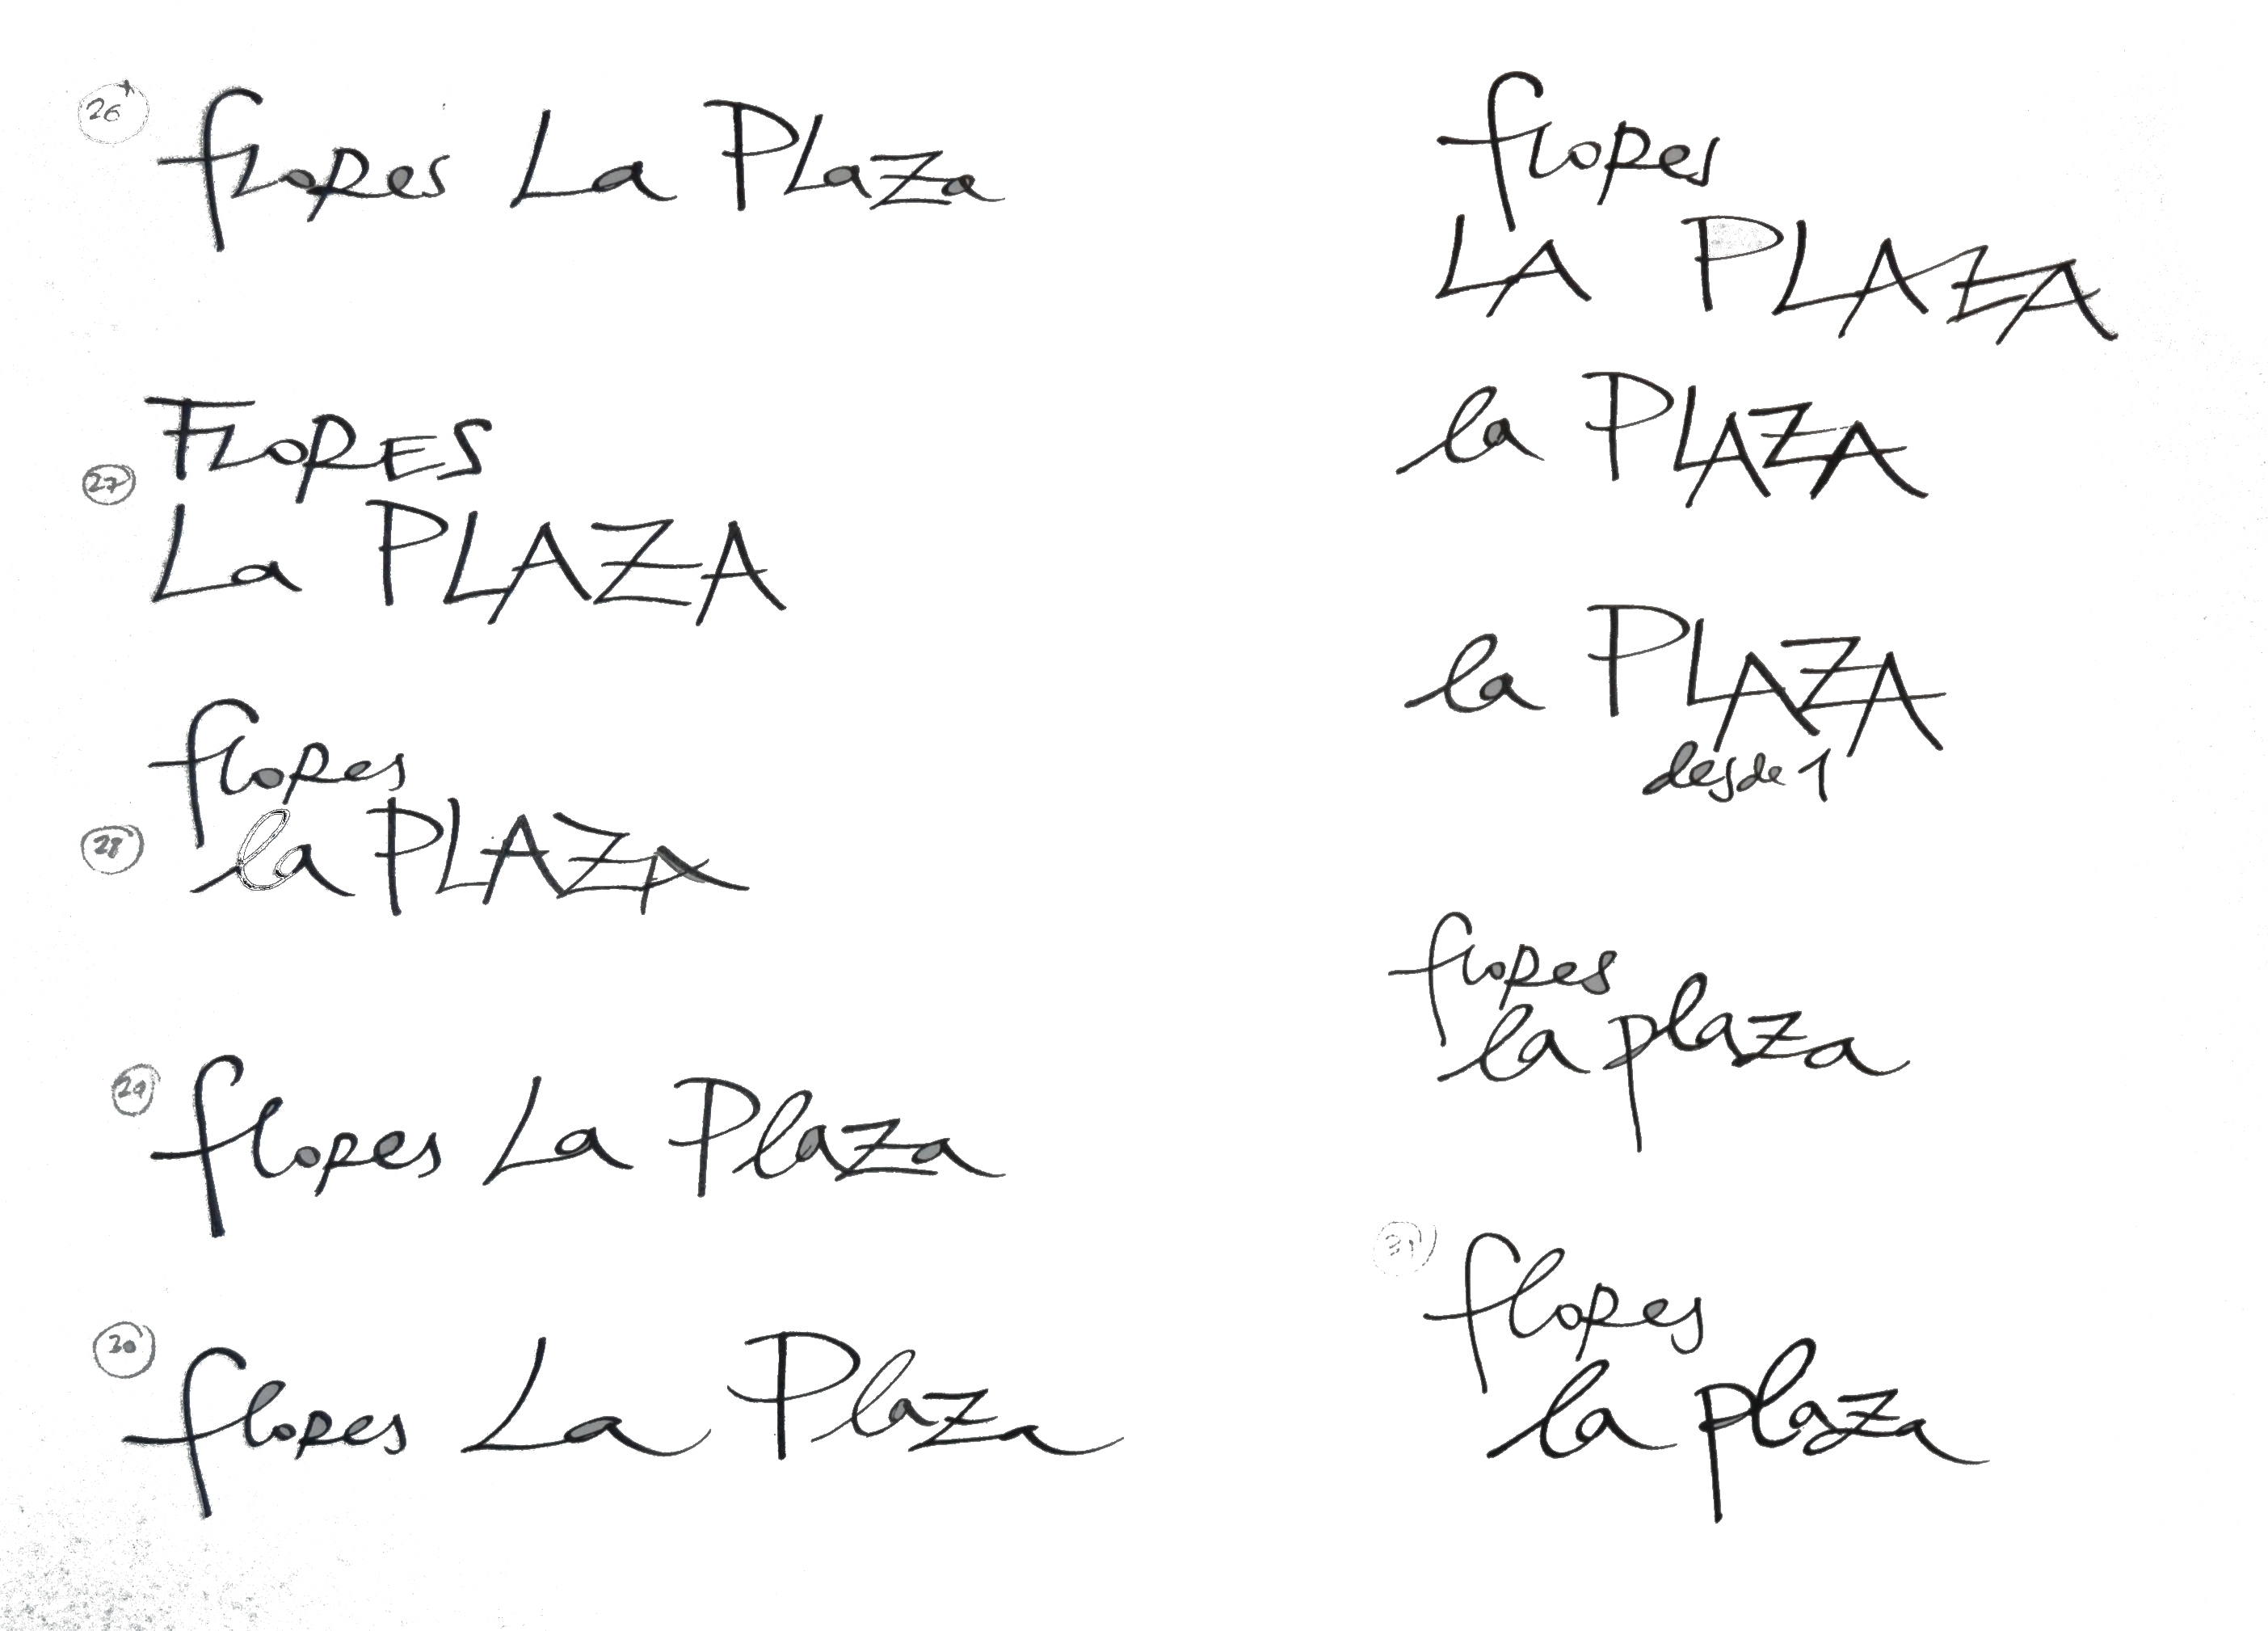 26
flores La Plaza
FLORES
27
La PLAZA
flores
28
la PLAZA
29
flores La Plaza
30
flores La Plaza
flores
LA PLAZA
la PLAZA
la PLAZA
desde 1
flores
la plaza
31
flores
la plaza